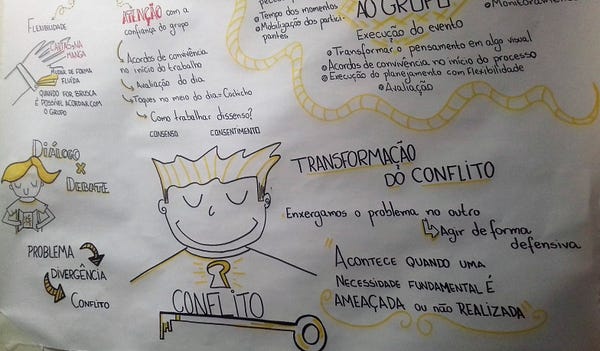 FLEXIBILIDADE
CARTAS NA
MANGA
MUDAR DE FORMA
FLUÍDA
QUANDO FOR BRUSCA
É POSSÍVEL ACORDAR COM
O GRUPO
ATENÇÃO com a
confiança do grupo
Acordos de convivência
no início do trabalho
Avaliação do dia
Toques no meio do dia = Cochicho
Como trabalhar dissenso?
CONSENSO CONSENTIMENTO
Tempo dos momentos
Mobilização dos partici-
pantes
AO GRUPO
Execução do evento
Transformar o pensamento em algo visual
Acordos de convivência no início do processo
Execução do planejamento com flexibilidade
Avaliação
DIÁLOGO
X
DEBATE
PROBLEMA
DIVERGÊNCIA
CONFLITO
CONFLITO
TRANSFORMAÇÃO
DO CONFLITO
Enxergamos o problema no outro
Agir de forma
defensiva
"ACONTECE QUANDO UMA
NECESSIDADE FUNDAMENTAL É
AMEAÇADA OU NÃO REALIZADA"